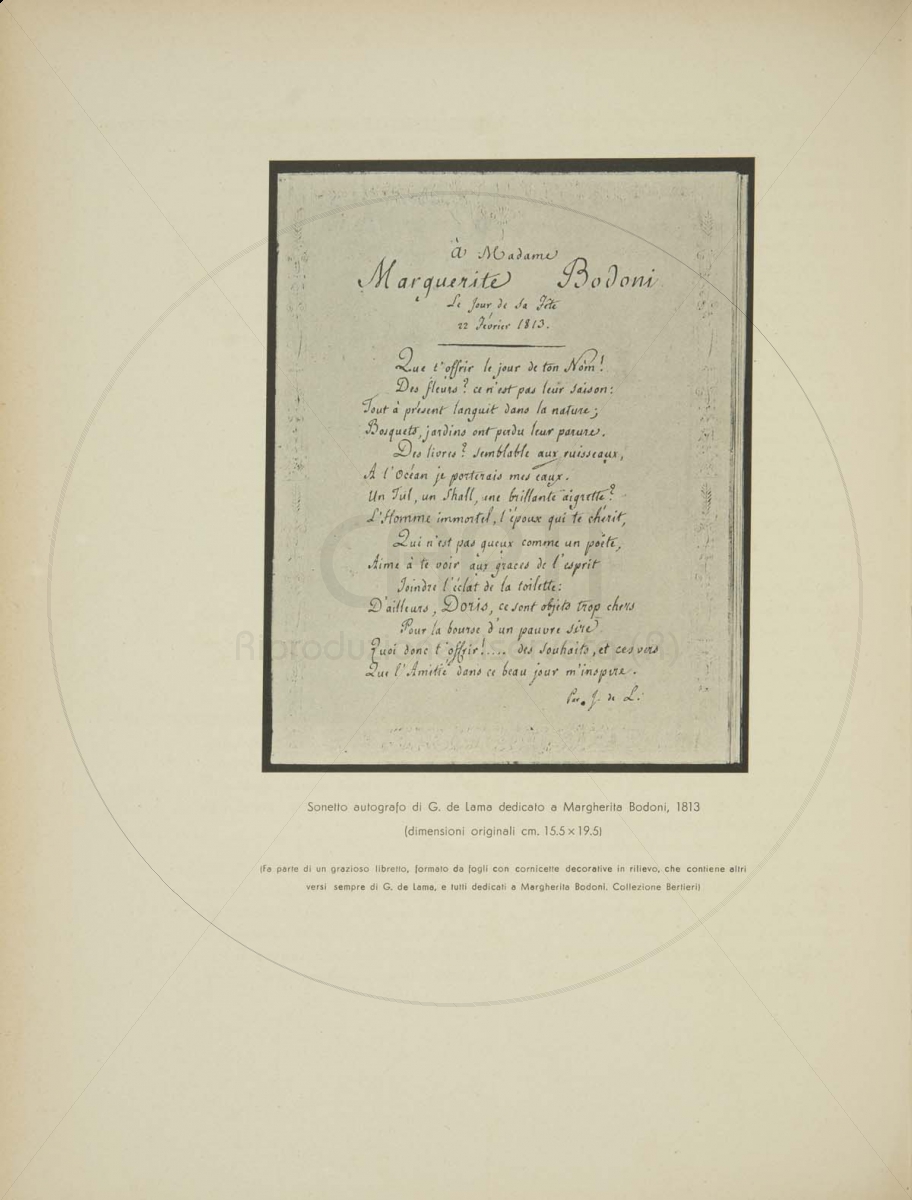 à Madame
Marguerite Bodoni
Le Jour de Sa Fête
22 Février 1813.
Que t'offrir le jour de ton Nom!
Des fleurs? ce n'est pas leur saison:
Tout à présent languit dans la nature;
Bosquets, jardins ont perdu leur parure.
Des livres? Semblable aux ruisseaux,
A l'Océan je porterais mes eaux.
Un Tul, un Shall, une brillante aigrette?
L'Homme immortel, l'époux qui te chérit,
Qui n'est pas gueux comme un poëte,
Aime à te voir aux graces de l'esprit
Joindre l'éclat de la toilette:
D'ailleurs, Doris, ce sont objets trop chers
Pour la bourse d'un pauvre Sire.
Quoi donc t'offrir!.... des Souhaits, et ces vers
Que l'Amitié dans ce beau jour m'inspire.
Par J. de L.
Sonetto autografo di G. de Lama dedicato a Margherita Bodoni, 1813
(dimensioni originali cm. 15.5 × 19.5)
(Fa parte di un grazioso libretto, formato da fogli con cornicette decorative in rilievo, che contiene altri
versi sempre di G. de Lama, e tutti dedicati a Margherita Bodoni. Collezione Bertieri)